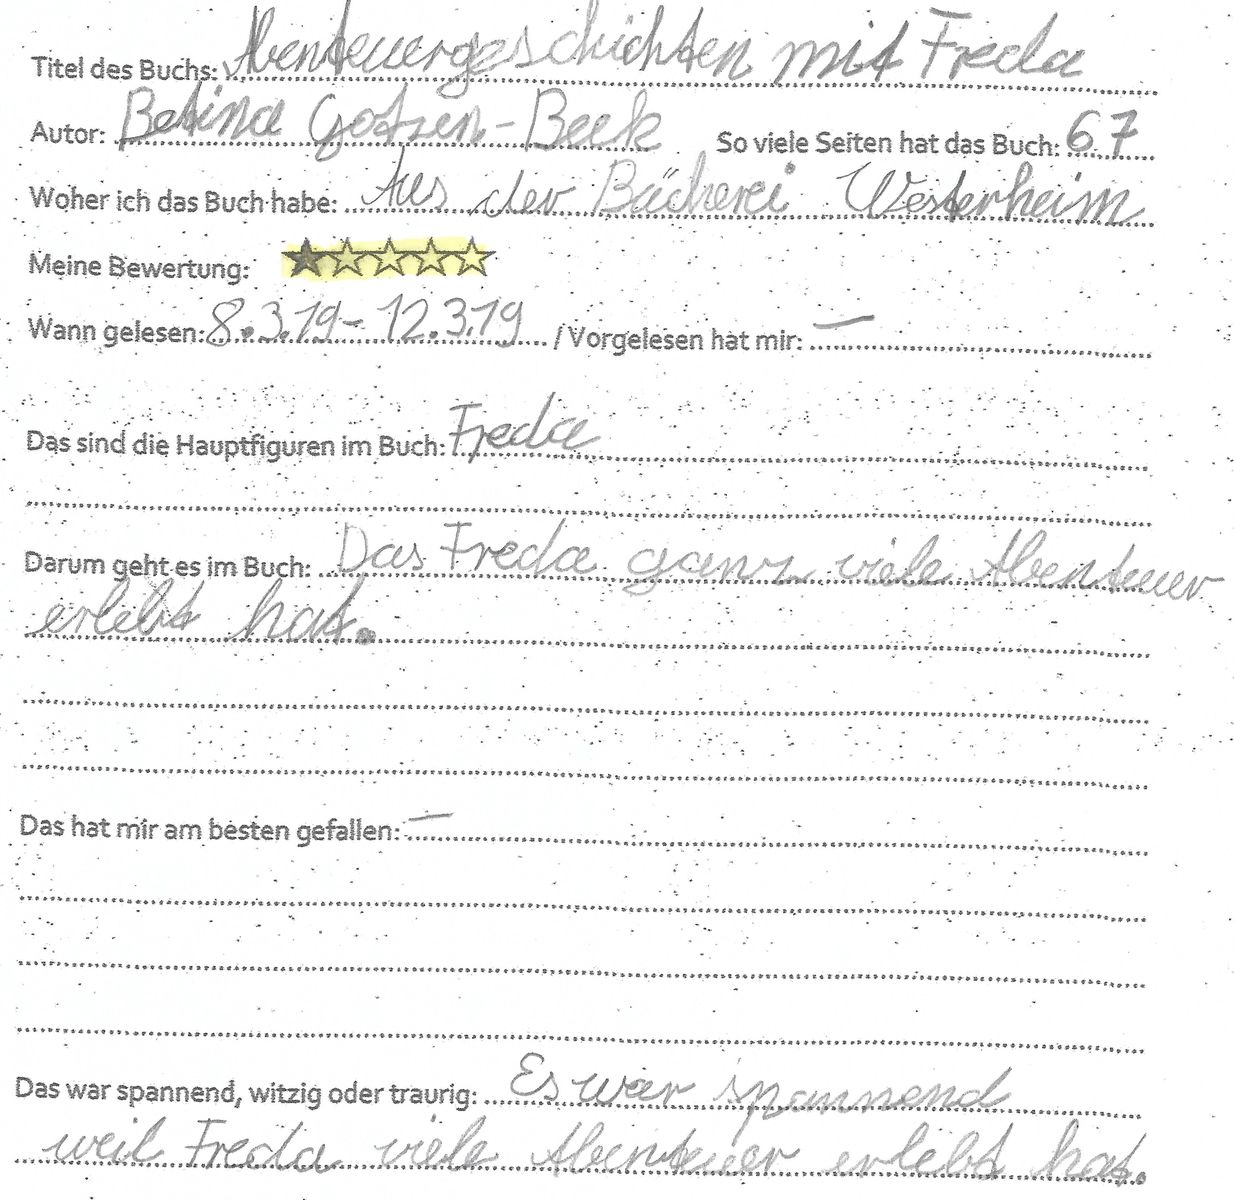 Titel des Buchs: Abenteuergeschichten mit Freda
Autor: Betina Gotzen-Beek So viele Seiten hat das Buch: 67
Woher ich das Buch habe: Aus der Bücherei Westerheim
Meine Bewertung: ★☆☆☆☆
Wann gelesen: 8.3.19 - 12.3.19 / Vorgelesen hat mir: —
Das sind die Hauptfiguren im Buch: Freda
Darum geht es im Buch: Das Freda ganz viele Abenteuer
erlebt hat.
Das hat mir am besten gefallen: —
Das war spannend, witzig oder traurig: Es war spannend
weil Freda viele Abenteuer erlebt hat.